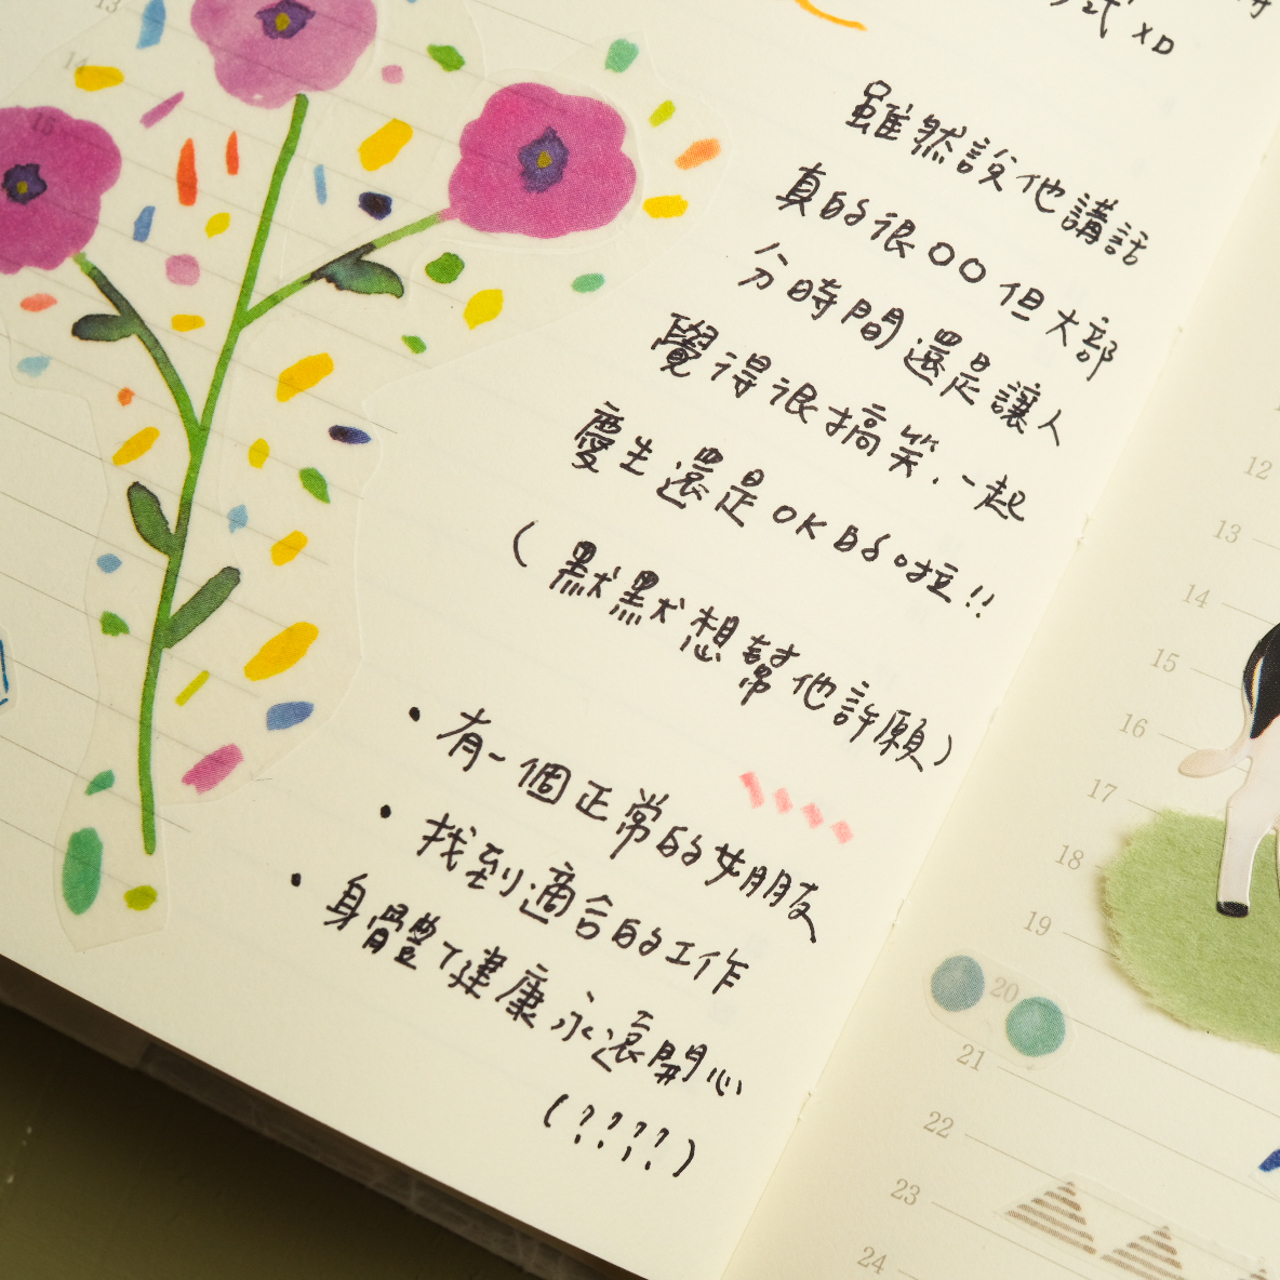 13
14
15
式 XD
雖然說他講話
真的很〇〇但大部
分時間還是讓人
覺得很搞笑.一起
慶生還是OK的啦!!
(默默想幫他許願)
• 有一個正常的女朋友
• 找到適合的工作
• 身體健康永遠開心
(????)
12
13
14
15
16
17
18
19
20
21
22
23
24